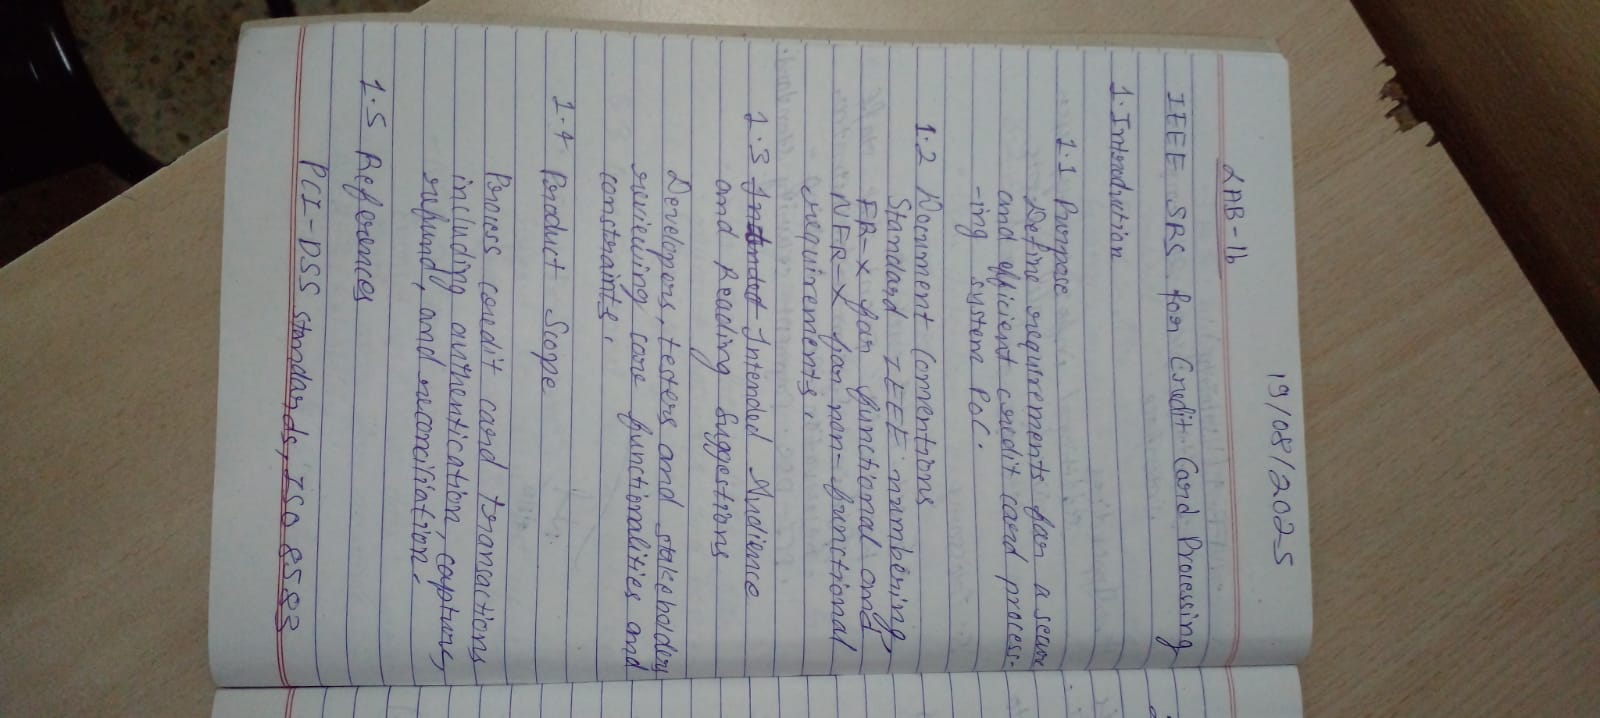 19/08/2025
LAB-1b
IEEE SRS for Credit Card Processing
1. Introdution
1.1 Purpose
Define requirements for a secure
and efficient credit card process-
-ing system POC.
1.2 Document Conventions
Standard IEEE numbering,
FR-X for functional and
NFR-X for non-functional
requirements.
1.3 Intended Audience
and Reading Suggestions
Developers, testers and stakeholders
reviewing core functionalities and
constraints.
1.4 Product Scope
Process credit card transactions
including authentication, capture,
refund, and reconciliation.
1.5 References
PCI-DSS standards, ISO 8583